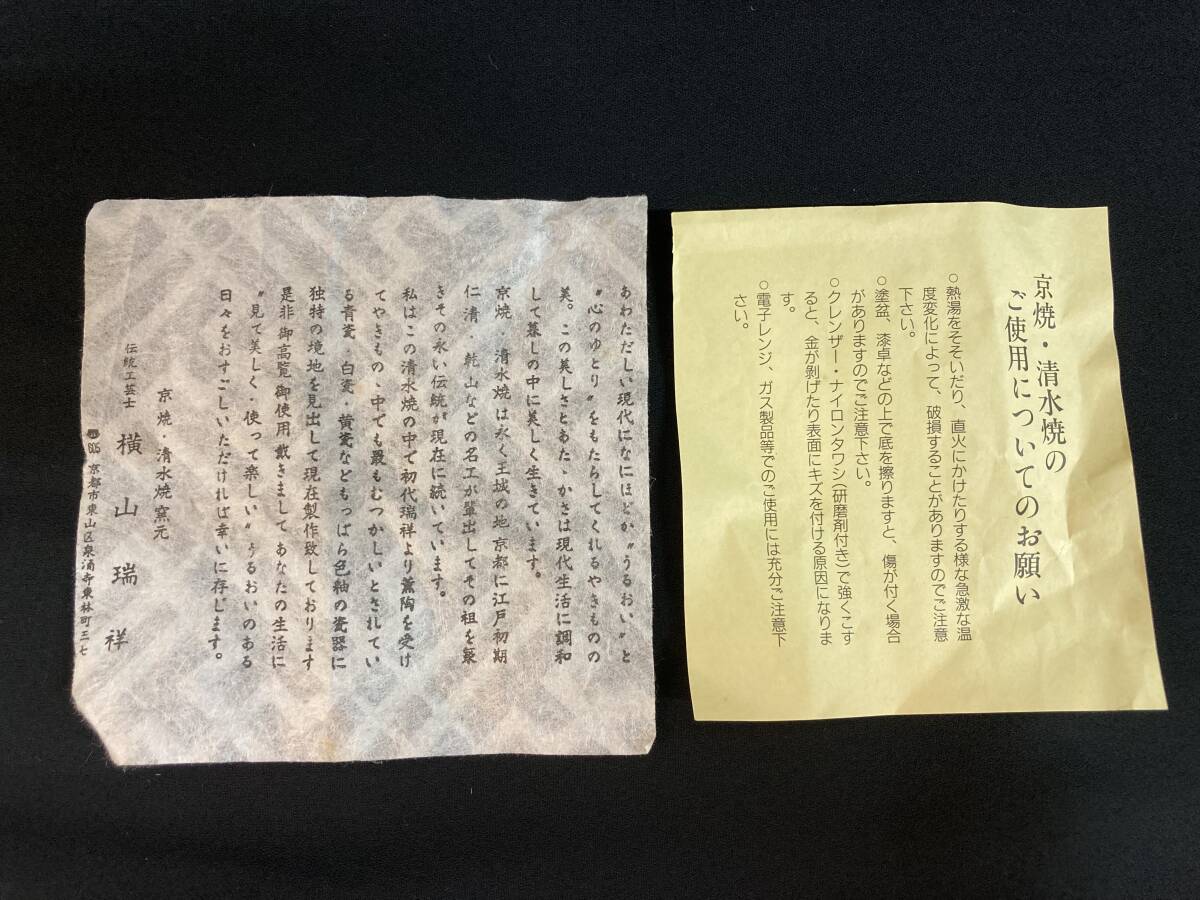 あわただしい現代になにほどか〝うるおい〟と
〝心のゆとり〟をもたらしてくれるやきものの
美。この美しさとあたゝかさは現代生活に調和
して暮しの中に美しく生きています。
京焼・清水焼は永く王城の地 京都に江戸初期
仁清・乾山などの名工が輩出してその祖を築
きその永い伝統が現在に続いています。
私はこの清水焼の中で初代瑞祥より薫陶を受け
てやきもの、中でも最もむつかしいとされてい
る青瓷・白瓷・黄瓷などもっぱら色釉の瓷器に
独特の境地を見出して現在製作致しております
是非御高覧御使用戴きましてあなたの生活に
〝見て美しく 使って楽しい〟うるおいのある
日々をおすごしいただければ幸いに存じます。
京焼・清水焼窯元
伝統工芸士 横山瑞祥
605 京都市東山区泉涌寺東林町三七
京焼・清水焼の
ご使用についてのお願い
○熱湯をそそいだり、直火にかけたりする様な急激な温
度変化によって、破損することがありますのでご注意
下さい。
○塗盆、漆卓などの上で底を擦りますと、傷が付く場合
がありますのでご注意下さい。
○クレンザー・ナイロンタワシ(研磨剤付き)で強くこす
ると、金が剝げたり表面にキズを付ける原因になりま
す。
○電子レンジ、ガス製品等でのご使用には充分ご注意下
さい。